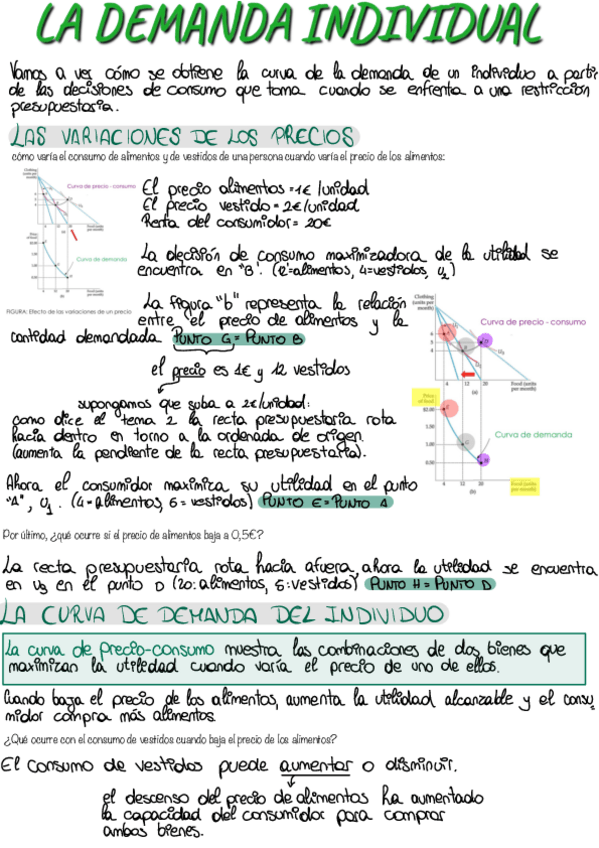 LA DEMANDA INDIVIDUAL
Vamos a ver cómo se obtiene la curva de la demanda de un individuo a partir
de las decisiones de consumo que toma cuando se enfrenta a una restricción
presupuestaria.
LAS VARIACIONES DE LOS PRECIOS
cómo varía el consumo de alimentos y de vestidos de una persona cuando varía el precio de los alimentos:
Clothing
(units per
month)
Curva de precio - consumo
Food (units
per month)
(a)
Price
of food
$2.00
Curva de demanda
Food (units
per month)
(b)
FIGURA: Efecto de las variaciones de un precio
El precio alimentos = 1€ /unidad
El precio vestido = 2€/unidad
Renta del consumidor = 20€
La decisión de consumo maximizadora de la utilidad se
encuentra en "B". (12=alimentos, 4=vestidos, U2)
La figura "b" representa la relación
entre el precio de alimentos y la
cantidad demandada. PUNTO G = PUNTO B
el precio es 1€ y 12 vestidos
supongamos que suba a 2€/unidad:
como dice el tema 2 la recta presupuestaria rota
hacia dentro en torno a la ordenada de origen.
(aumenta la pendiente de la recta presupuestaria).
Clothing
(units per
month)
Curva de precio - consumo
6
5
4
4 12 20
Food (units
per month)
(a)
Price
of food
$2.00
1.50
1.00
0.50
Curva de demanda
4 12 20
Food (units
per month)
(b)
Ahora el consumidor maximiza su utilidad en el punto
"A", U1. (4=alimentos, 6=vestidos) PUNTO E = PUNTO A
Por último, ¿qué ocurre si el precio de alimentos baja a 0,5€?
La recta presupuestaria rota hacia afuera, ahora la utilidad se encuentra
en U3 en el punto D (20:alimentos, 5:vestidos) PUNTO H = PUNTO D
LA CURVA DE DEMANDA DEL INDIVIDUO
La curva de precio-consumo muestra las combinaciones de dos bienes que
maximizan la utilidad cuando varía el precio de uno de ellos.
Cuando baja el precio de los alimentos, aumenta la utilidad alcanzable y el consu-
midor compra más alimentos.
¿Qué ocurre con el consumo de vestidos cuando baja el precio de los alimentos?
El consumo de vestidos puede aumentar o disminuir.
el descenso del precio de alimentos ha aumentado
la capacidad del consumidor para comprar
ambos bienes.